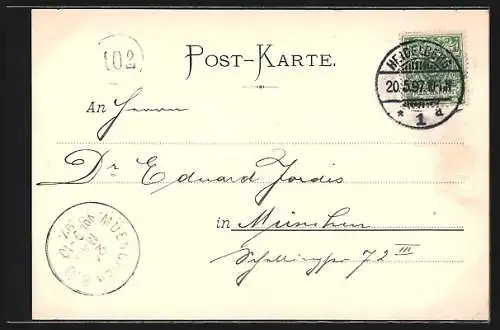 102
POST-KARTE.
HEIDELBERG
20.5.97.
* 1 d
An Herrn
Dr Eduard Jordis
in München
Schellingstr 72 III
MUENCHEN